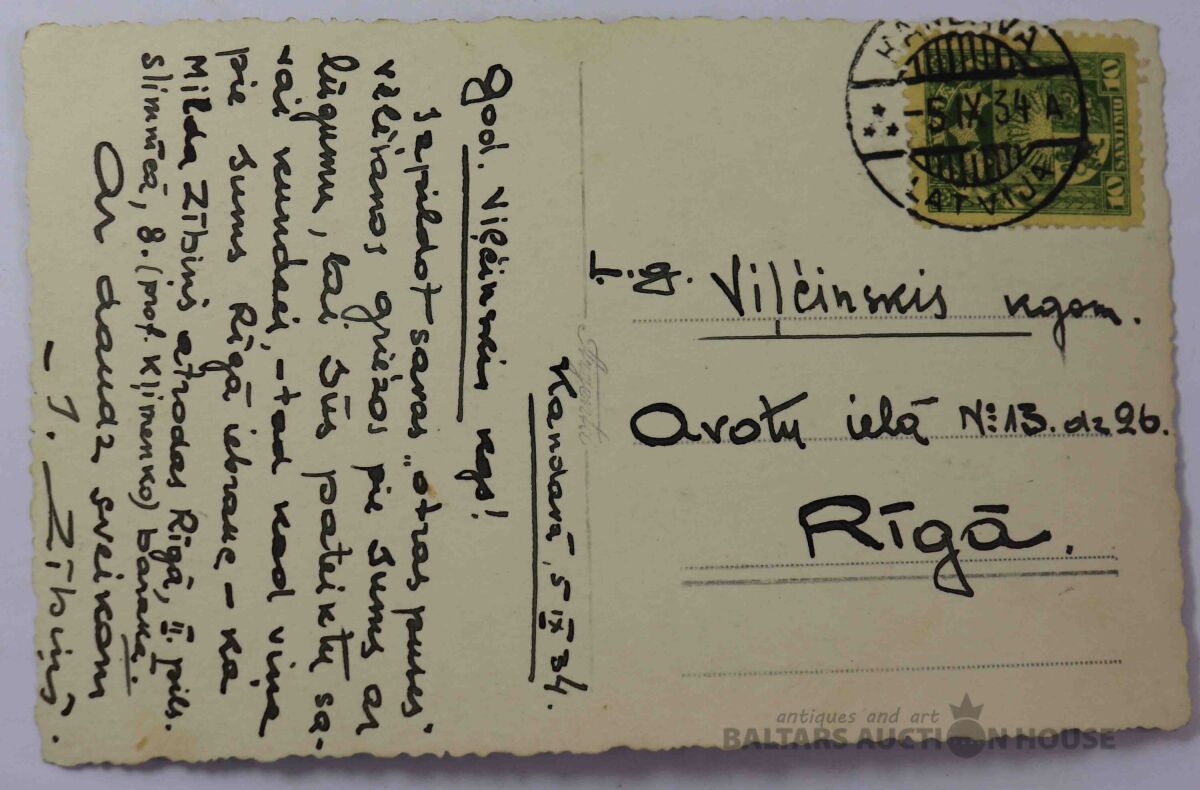 Kandavā, 5 IX 34.
God. Viļčinskis kgs!
Izpildot savas „otras puses"
vēlēšanos griežos pie Jums ar
lūgumu, lai Jūs pateiktu sa-
vai kundzei, – tad kad viņa
pie Jums Rīgā iebrauc – ka
Milda Zībiņš atrodas Rīgā, II. pils.
slimnīcā, 8. (prof. Kļimenko) barakā.
Ar daudz sveikām
– J. Zībiņš.
KANDAVA
-5 IX 34 A
LATVIJA
10 SANTIMU 10
L. g. Viļčinskis kgam.
Avotu ielā № 13. dz 26.
Rīgā.
antiques and art
BALTARS AUCTION HOUSE